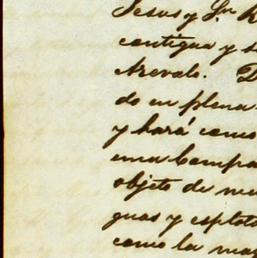 Jesus y Sn R
contigua y s
Arevalo. D
do en plena
y hará como
una Compa
objeto de me
guas y esplot
como la mas